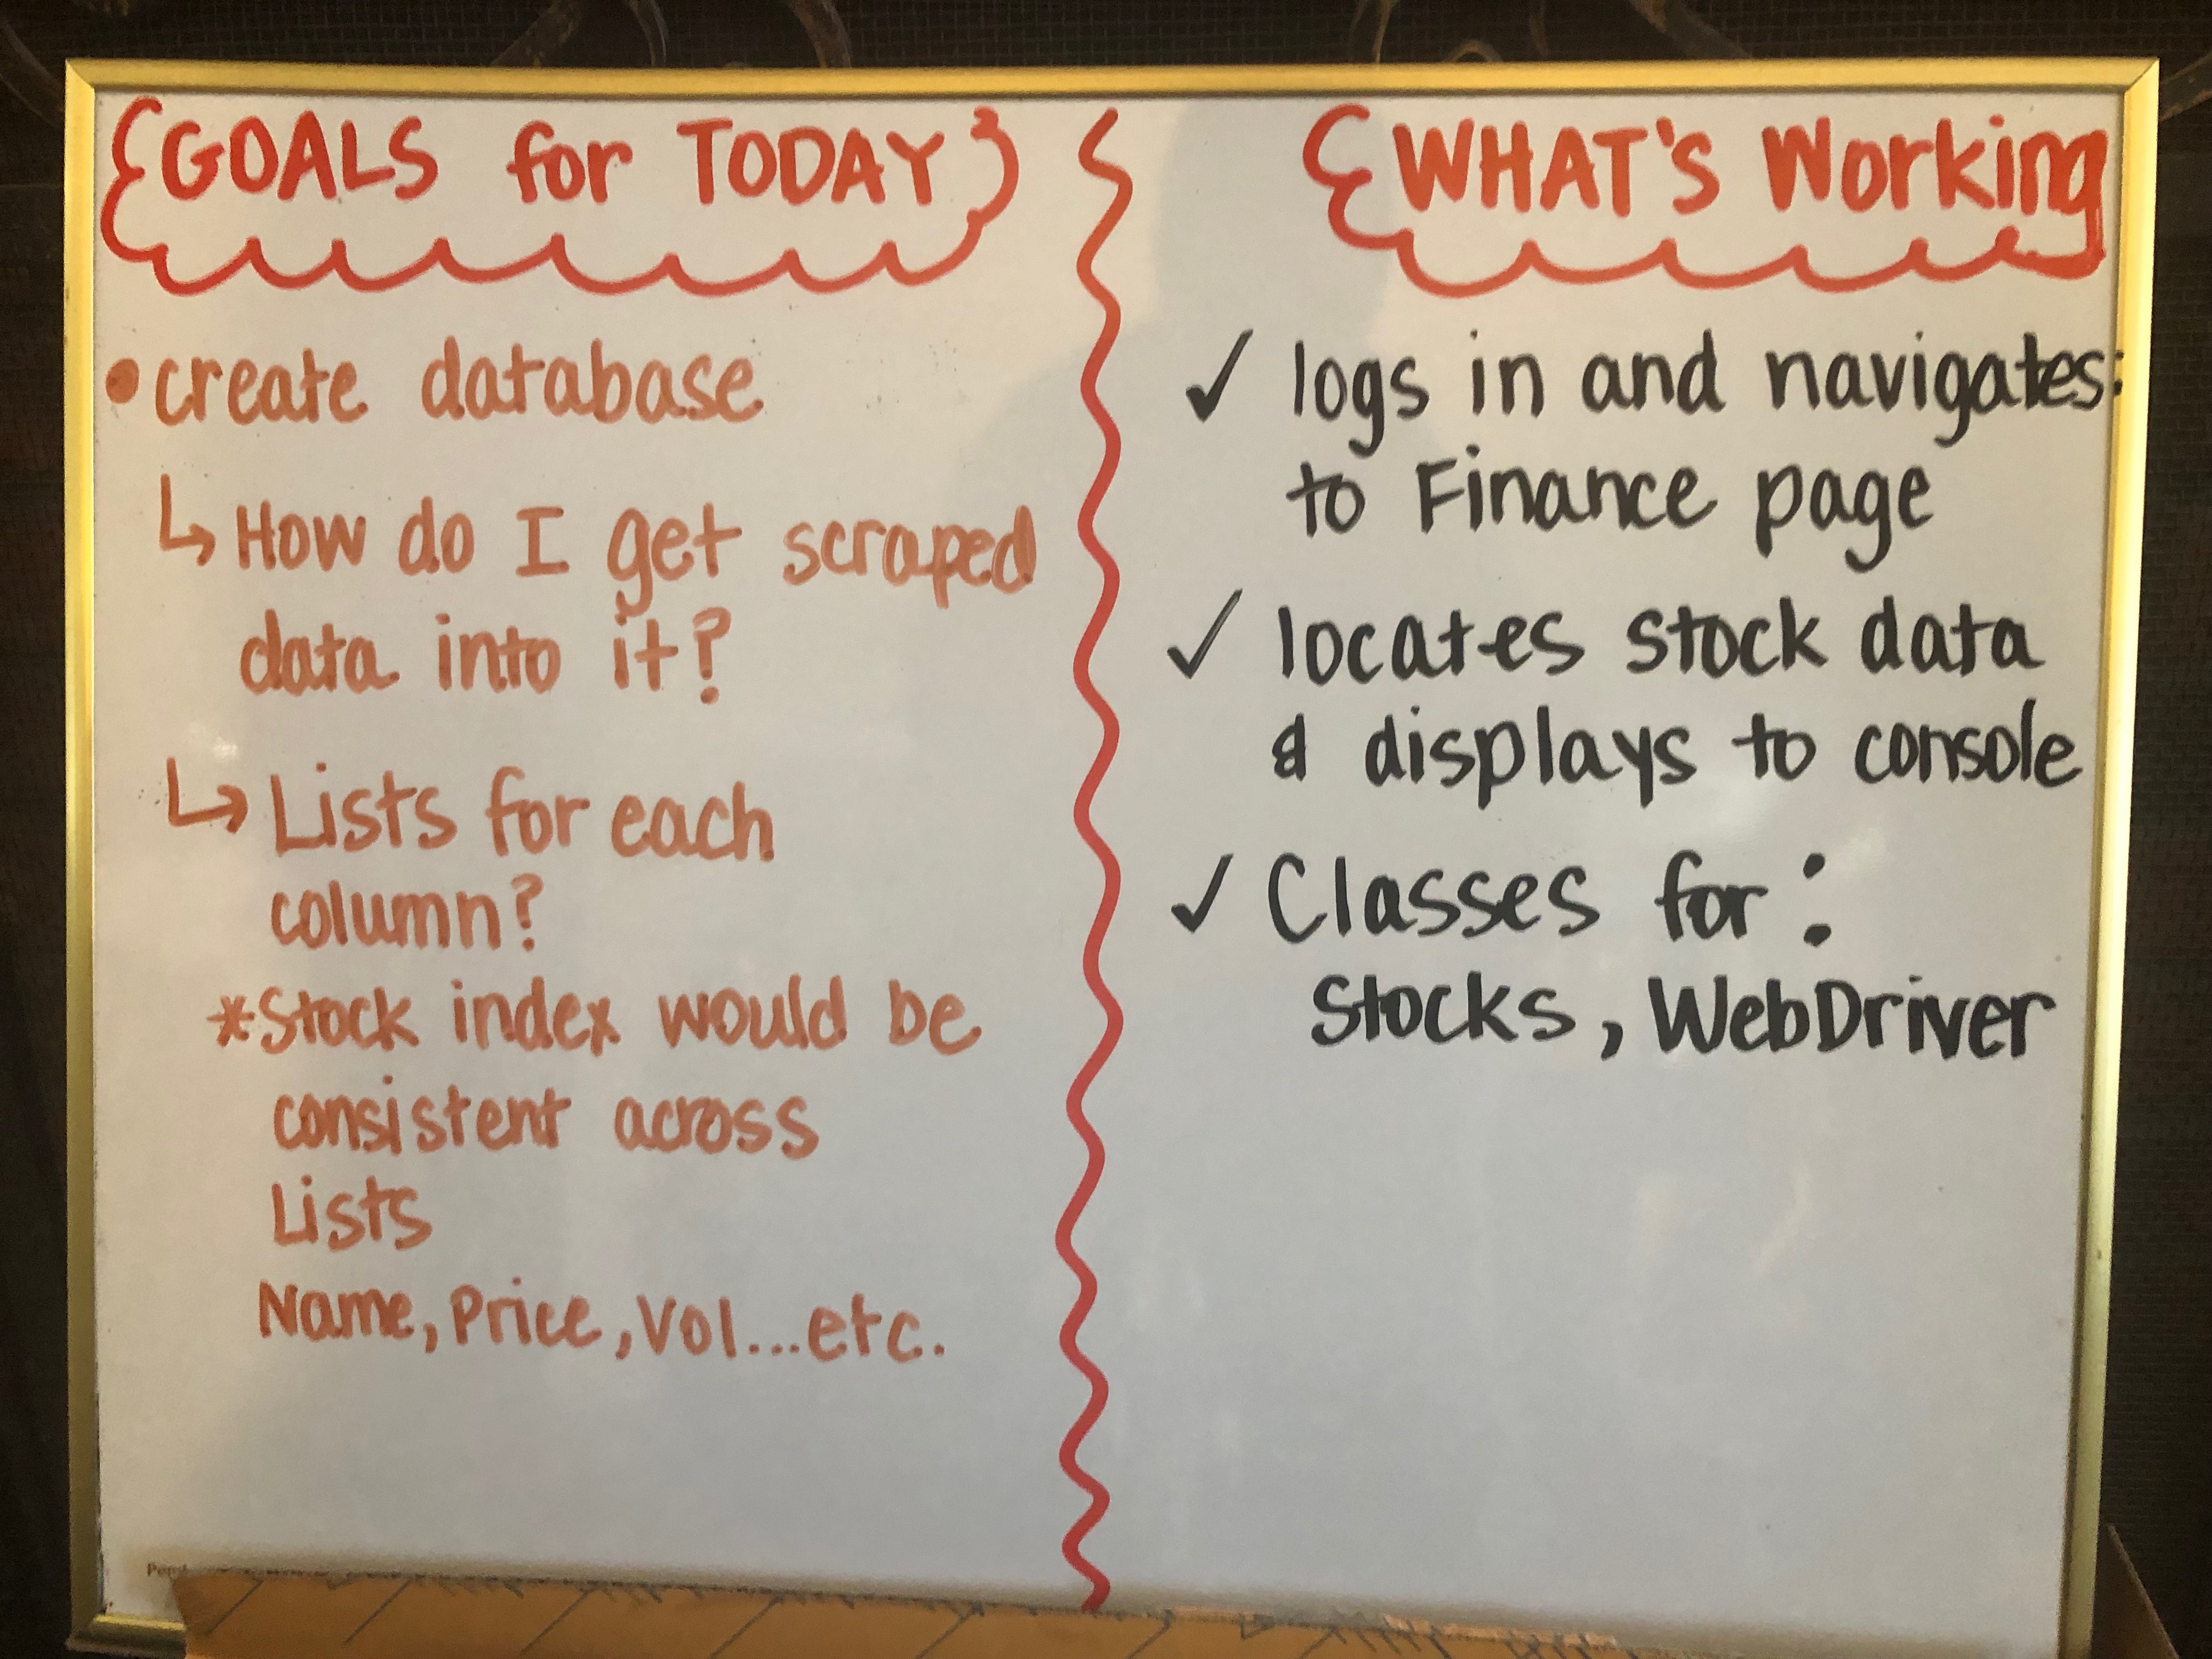 GOALS for TODAY
• create database
↳ How do I get scraped
data into it?
↳ Lists for each
column?
*Stock index would be
consistent across
Lists
Name, Price, Vol...etc.
WHAT's Working
✓ logs in and navigates
to Finance page
✓ locates stock data
& displays to console
✓ Classes for:
Stocks, WebDriver